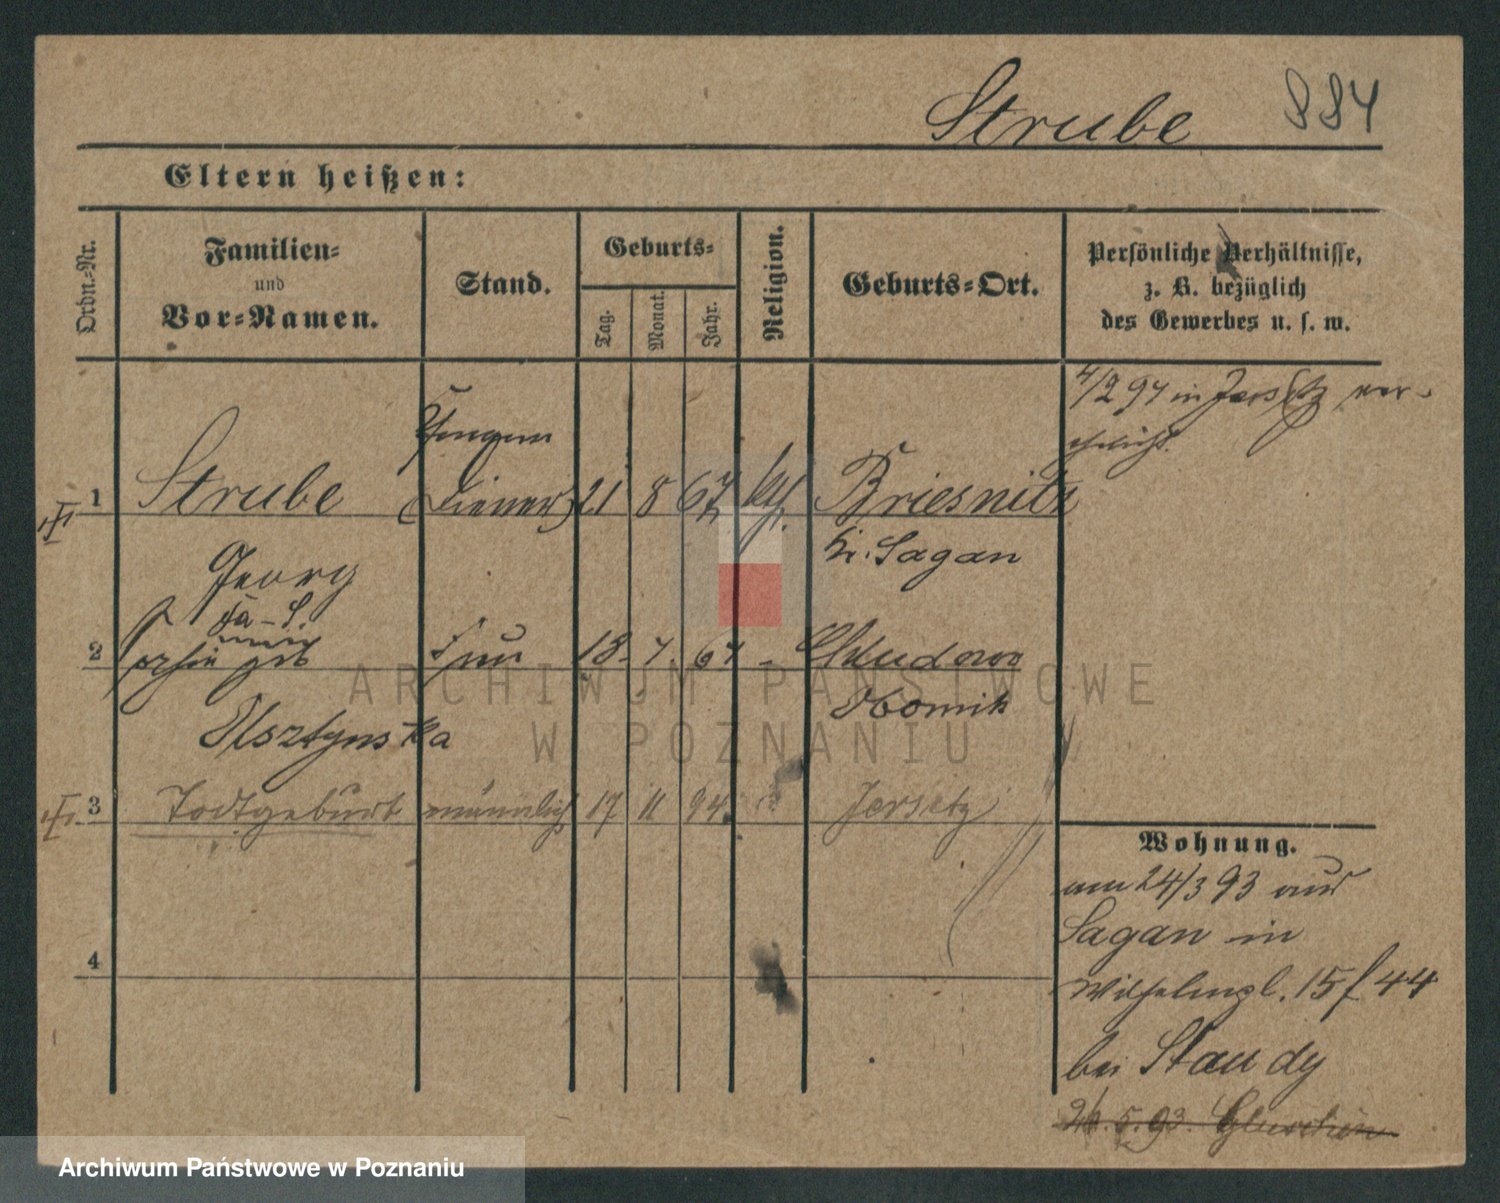 Strube 884
Eltern heißen:
Ordn.-Nr.
Familien-
und
Vor-Namen.
Stand.
Geburts-
Tag.
Monat.
Jahr.
Religion.
Geburts-Ort.
Persönliche Verhältnisse,
z. B. bezüglich
des Gewerbes u. s. w.
4/2 94 in Jersitz ver-
ehelicht.
1 Strube (Diener) 21 8 67 Briesnitz
Kr. Sagan
Georg
2 geb 18. 7. 67 - Chludowo
Obornik
Olsztynska
3 Todtgeburt männlich 17 11 94. Jersitz
Wohnung.
am 24/3 93 aus
Sagan in
Wilhelmpl. 15 f 44
4
bei Staudy
5. 93.
ARCHIWUM PAŃSTWOWE
W POZNANIU
Archiwum Państwowe w Poznaniu